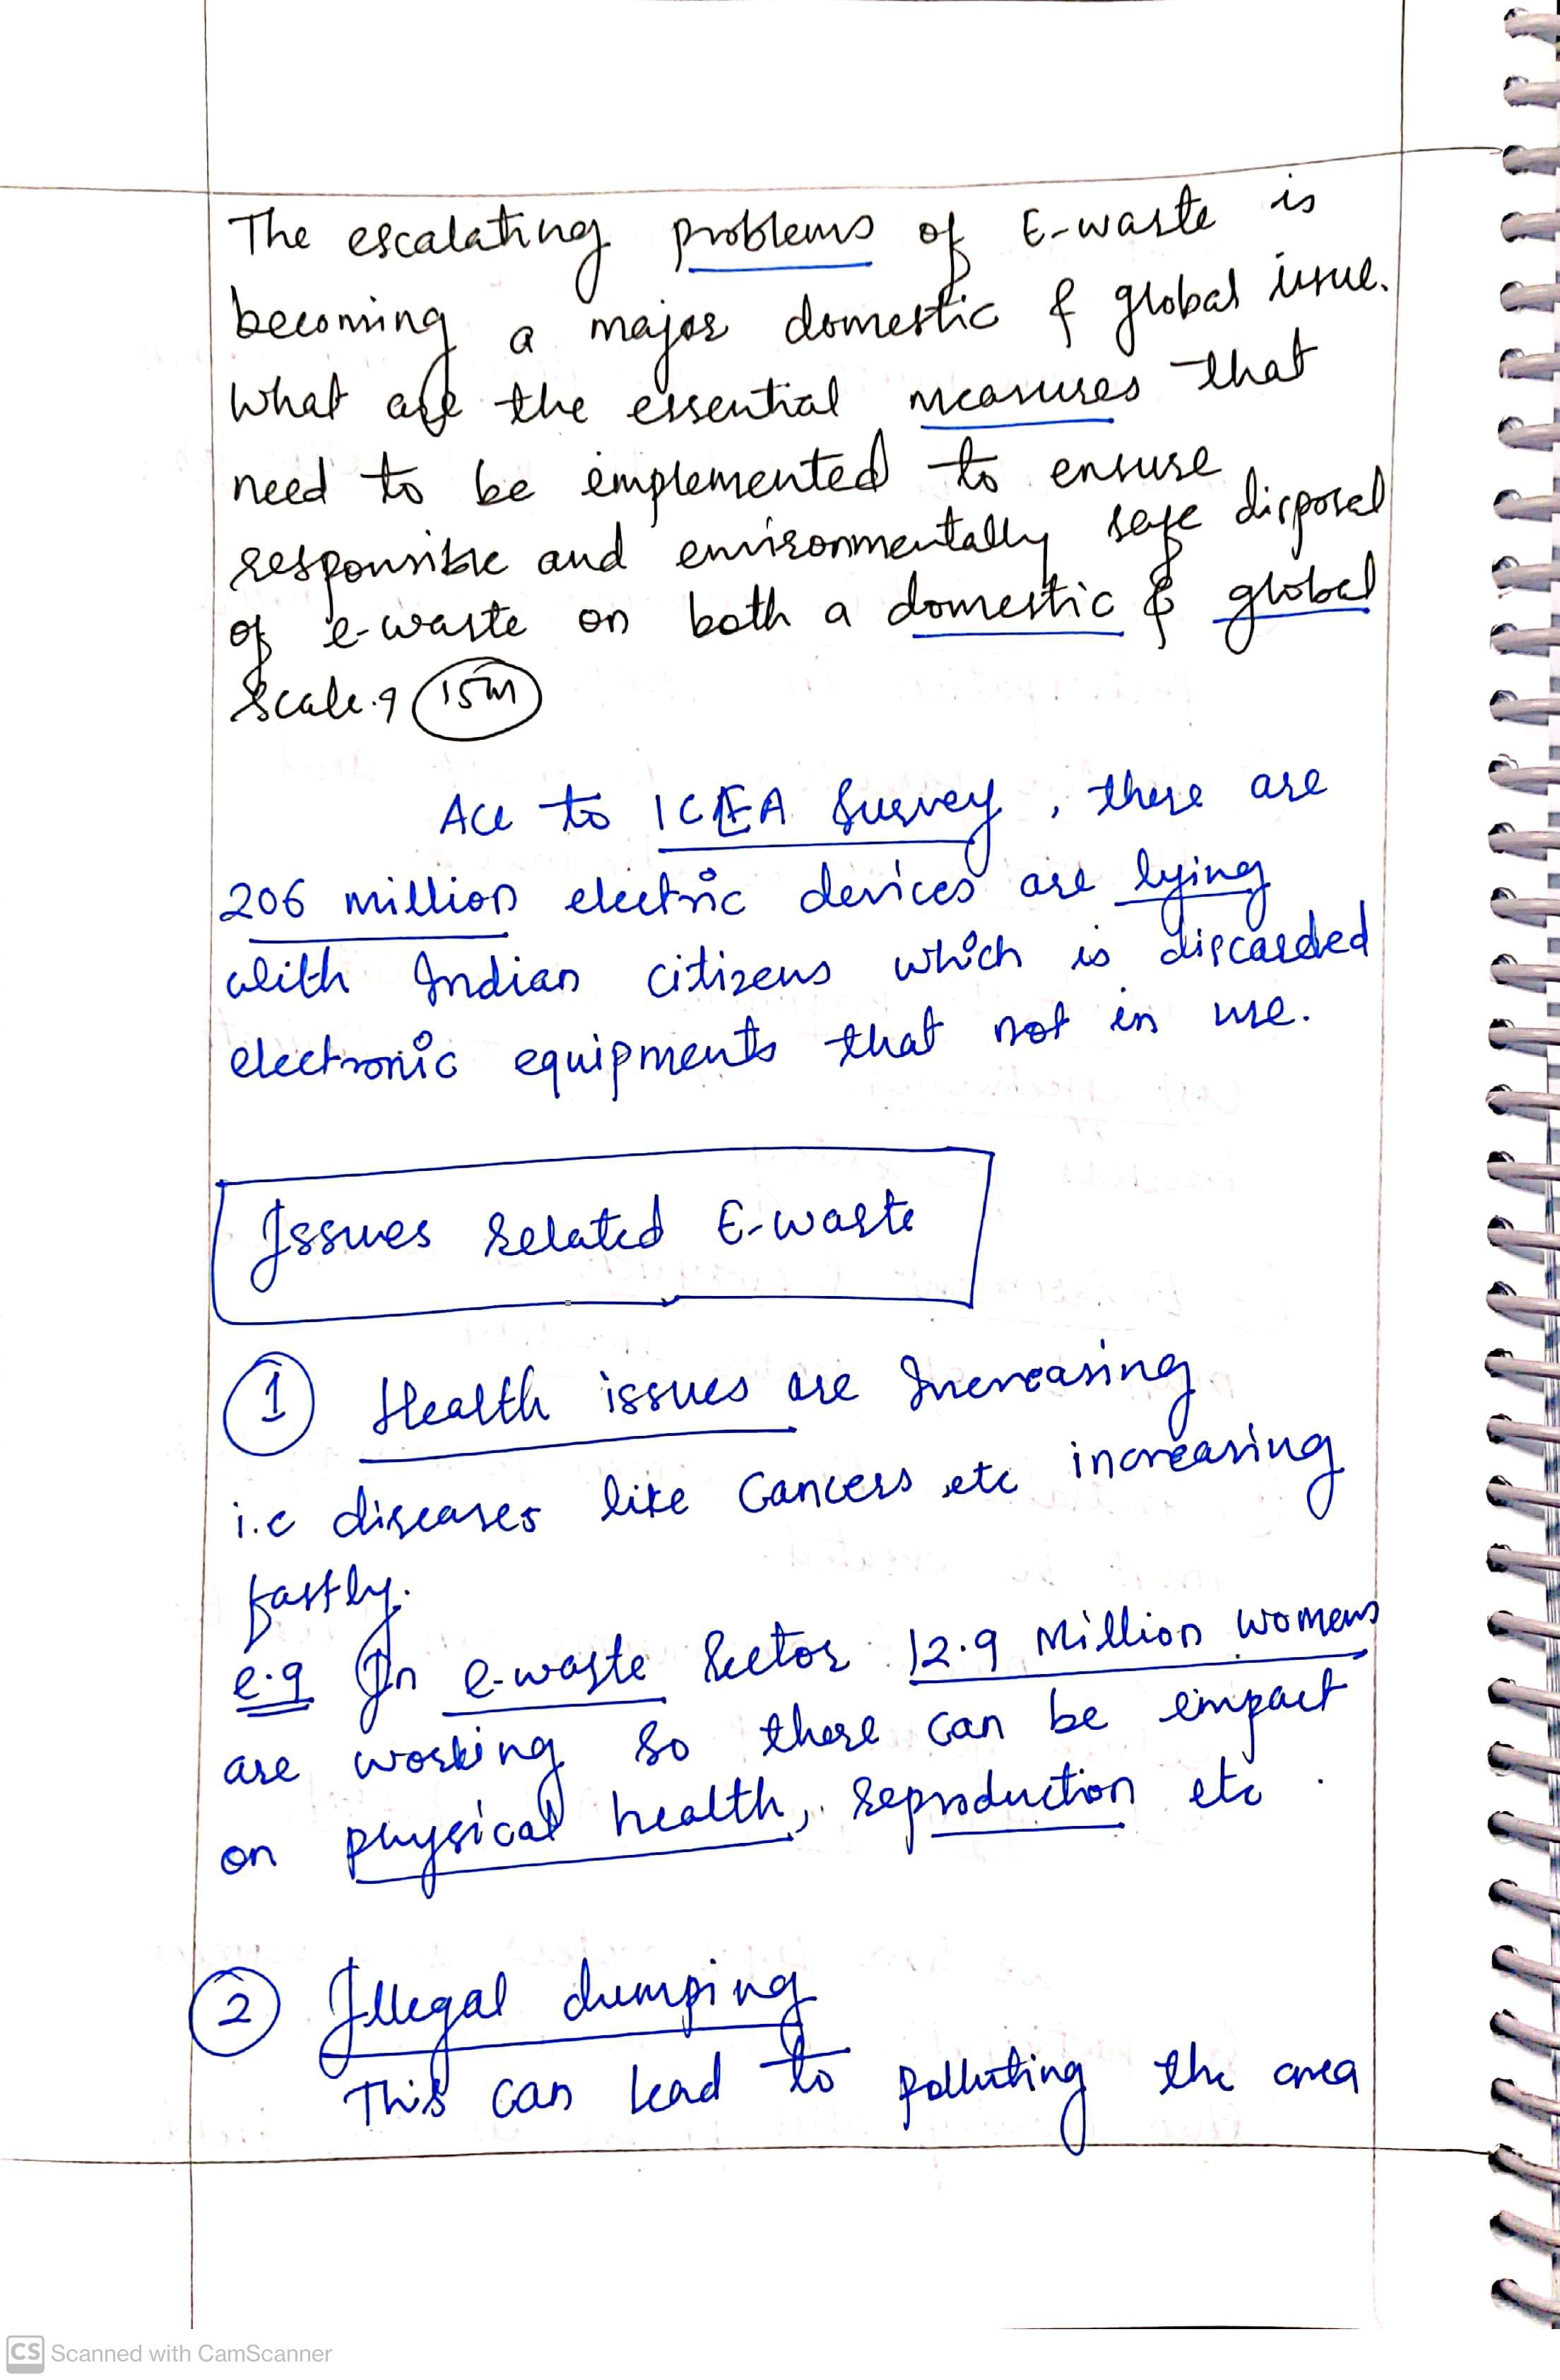 The escalating problems of E-waste is
becoming a major domestic & global issue.
What are the essential measures that
need to be implemented to ensure
responsible and environmentally safe disposal
of e-waste on both a domestic & global
Scale.? 15m
Acc to ICEA Survey, there are
206 million electric devices are lying
with Indian citizens which is discarded
electronic equipments that not in use.
Issues related E-waste
1 Health issues are Increasing
i.e diseases like Cancers etc increasing
fastly.
e.g In e-waste Sector 12.9 Million womens
are working so there can be impact
on physical health, reproduction etc.
2 Illegal dumping
This can lead to polluting the area
CS Scanned with CamScanner